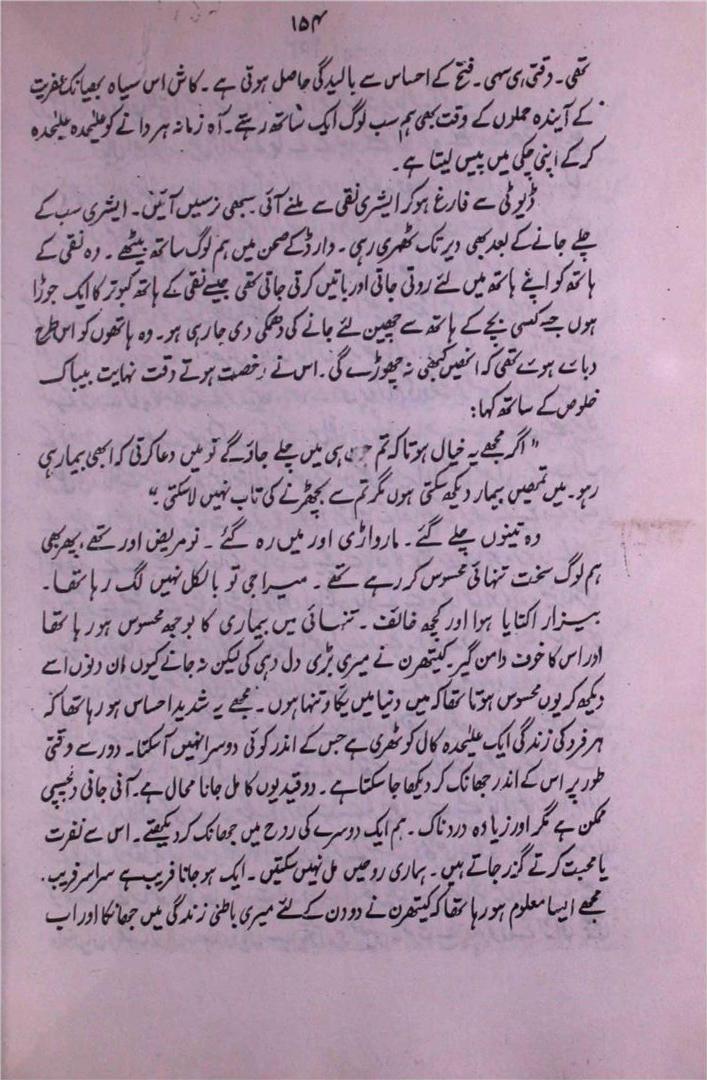 ۱۵۴
تھی۔ وقتی ہی سہی۔ فتح کے احساس سے بالیدگی حاصل ہوتی ہے۔ کاش اس سیاہ بھیانک عفریت
کے آیندہ حملوں کے وقت بھی ہم سب لوگ ایک ساتھ رہتے۔ آہ زمانہ ہر دانے کو علیٰحدہ علیٰحدہ
کر کے اپنی چکی میں پیس لیتا ہے۔
ڈیوٹی سے فارغ ہو کر ایشری نقی سے ملنے آئی سبھی نرسیں آئیں۔ ایشری سب کے
چلے جانے کے بعد بھی دیر تک ٹھہری رہی۔ وارڈ کے صحن میں ہم لوگ ساتھ بیٹھے۔ وہ نقی کے
ہاتھ کو اپنے ہاتھ میں لئے روتی جاتی اور باتیں کرتی جاتی تھی جیسے نقی کے ہاتھ کبوتر کا ایک جوڑا
ہوں جسے کسی بچے کے ہاتھ سے چھین لئے جانے کی دھمکی دی جا رہی ہو۔ وہ ہاتھوں کو اس طرح
دبائے ہوئے تھی کہ انھیں کبھی نہ چھوڑے گی۔ اس نے رخصت ہوتے وقت نہایت بیباک
خلوص کے ساتھ کہا:
"اگر مجھے یہ خیال ہوتا کہ تم ہی میں چلے جاؤ گے تو میں دعا کرتی کہ ابھی بیمار ہی
رہو۔ میں تمھیں بیمار دیکھ سکتی ہوں مگر تم سے بچھڑنے کی تاب نہیں لا سکتی۔"
وہ تینوں چلے گئے۔ مارواڑی اور میں رہ گئے۔ نو مریض اور تھے، پھر بھی
ہم لوگ سخت تنہائی محسوس کر رہے تھے۔ میرا جی تو بالکل نہیں لگ رہا تھا۔
بیزار اکتایا ہوا اور کچھ خائف۔ تنہائی میں بیماری کا بوجھ محسوس ہو رہا تھا
اور اس کا خوف دامن گیر۔ کیتھرن نے میری بڑی دل دہی کی لیکن نہ جانے کیوں ان دنوں اسے
دیکھ کر یوں محسوس ہوتا تھا کہ میں دنیا میں یکا و تنہا ہوں۔ مجھے یہ شدید احساس ہو رہا تھا کہ
ہر فرد کی زندگی ایک علیٰحدہ کال کوٹھری ہے جس کے اندر کوئی دوسرا نہیں آ سکتا۔ دور سے وقتی
طور پر اس کے اندر جھانک کر دیکھا جا سکتا ہے۔ دو قیدیوں کا مل جانا محال ہے۔ آنی جانی دلچسپی
ممکن ہے مگر اور زیادہ دردناک۔ ہم ایک دوسرے کی روح میں جھانک کر دیکھتے۔ اس سے نفرت
یا محبت کرتے گزر جاتے ہیں۔ ہماری روحیں مل نہیں سکتیں۔ ایک ہو جانا فریب ہے سراسر فریب۔
مجھے ایسا معلوم ہو رہا تھا کہ کیتھرن نے دو دن کے لئے میری باطنی زندگی میں جھانکا اور اب